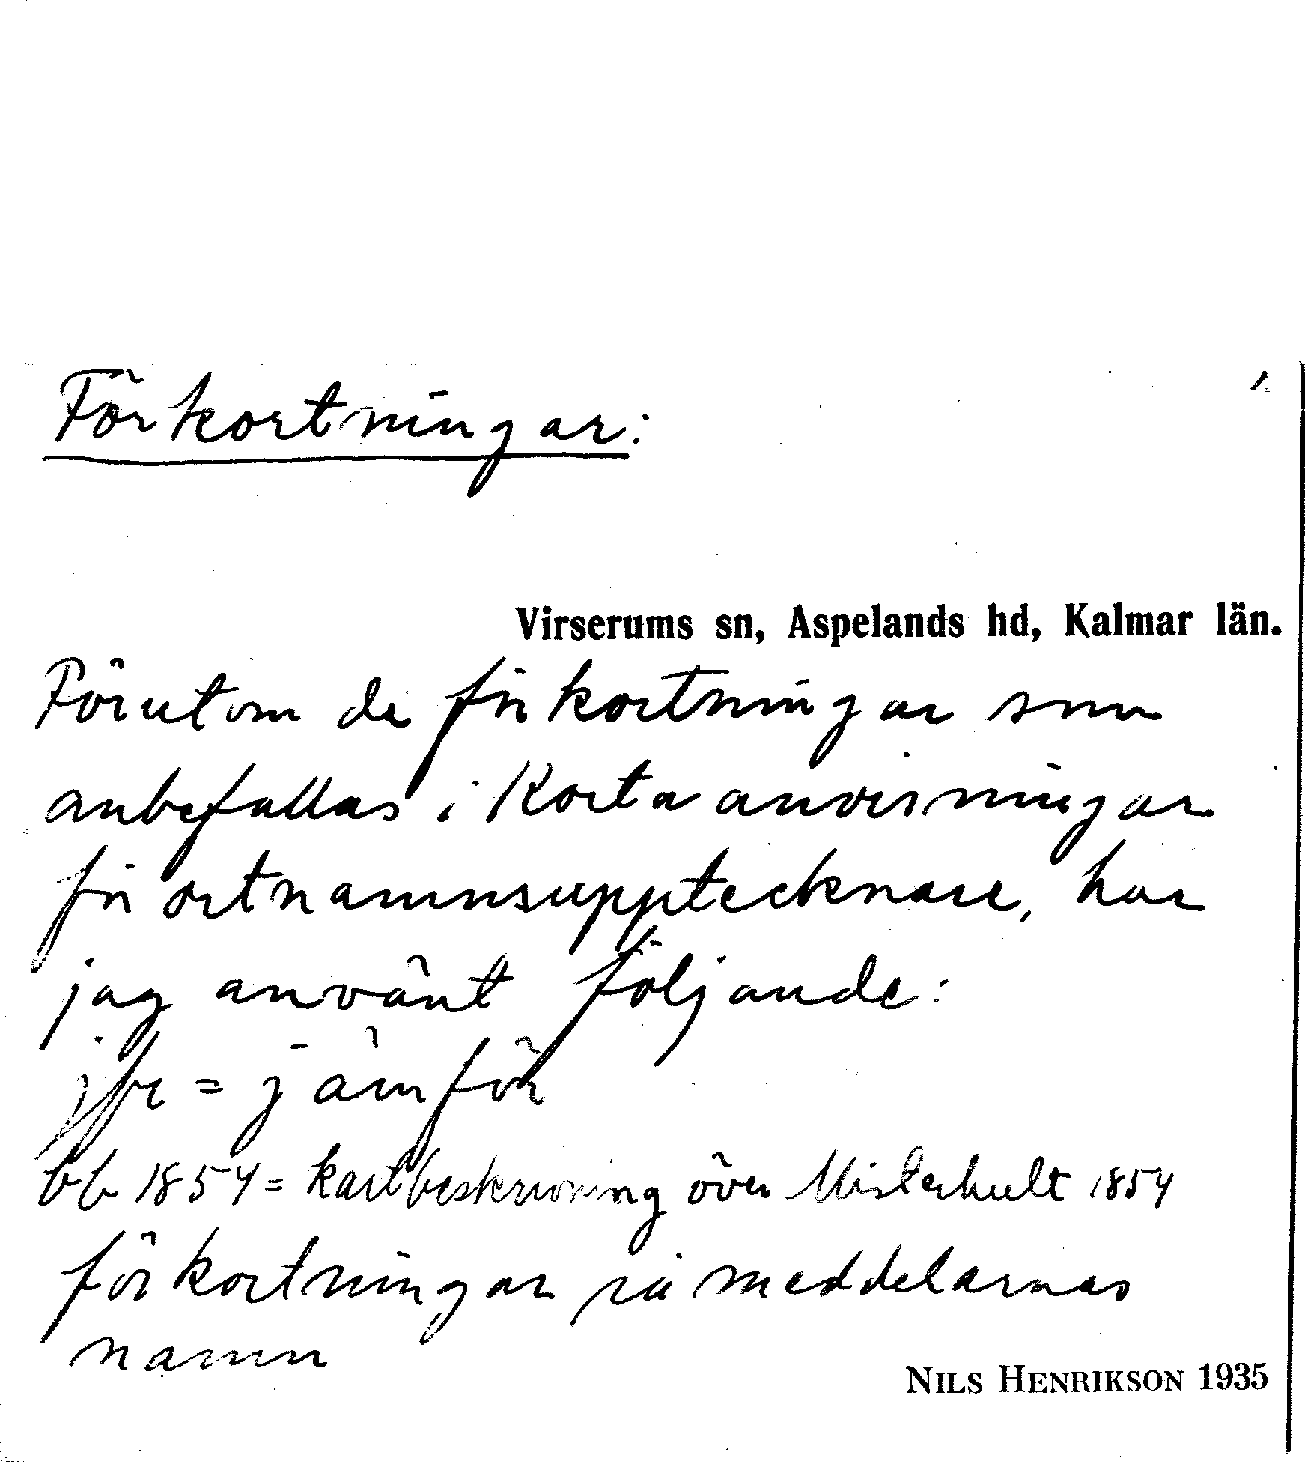 Förkortningar:
Virserums sn, Aspelands hd, Kalmar län.
Förutom de förkortningar som
anbefallas i Korta anvisningar
för ortnamnsupptecknare, har
jag använt följande:
jfr = jämför
bb 1854 = kartbeskrivning över Misterhult 1854
förkortningar på meddelarnas
namn
NILS HENRIKSON 1935